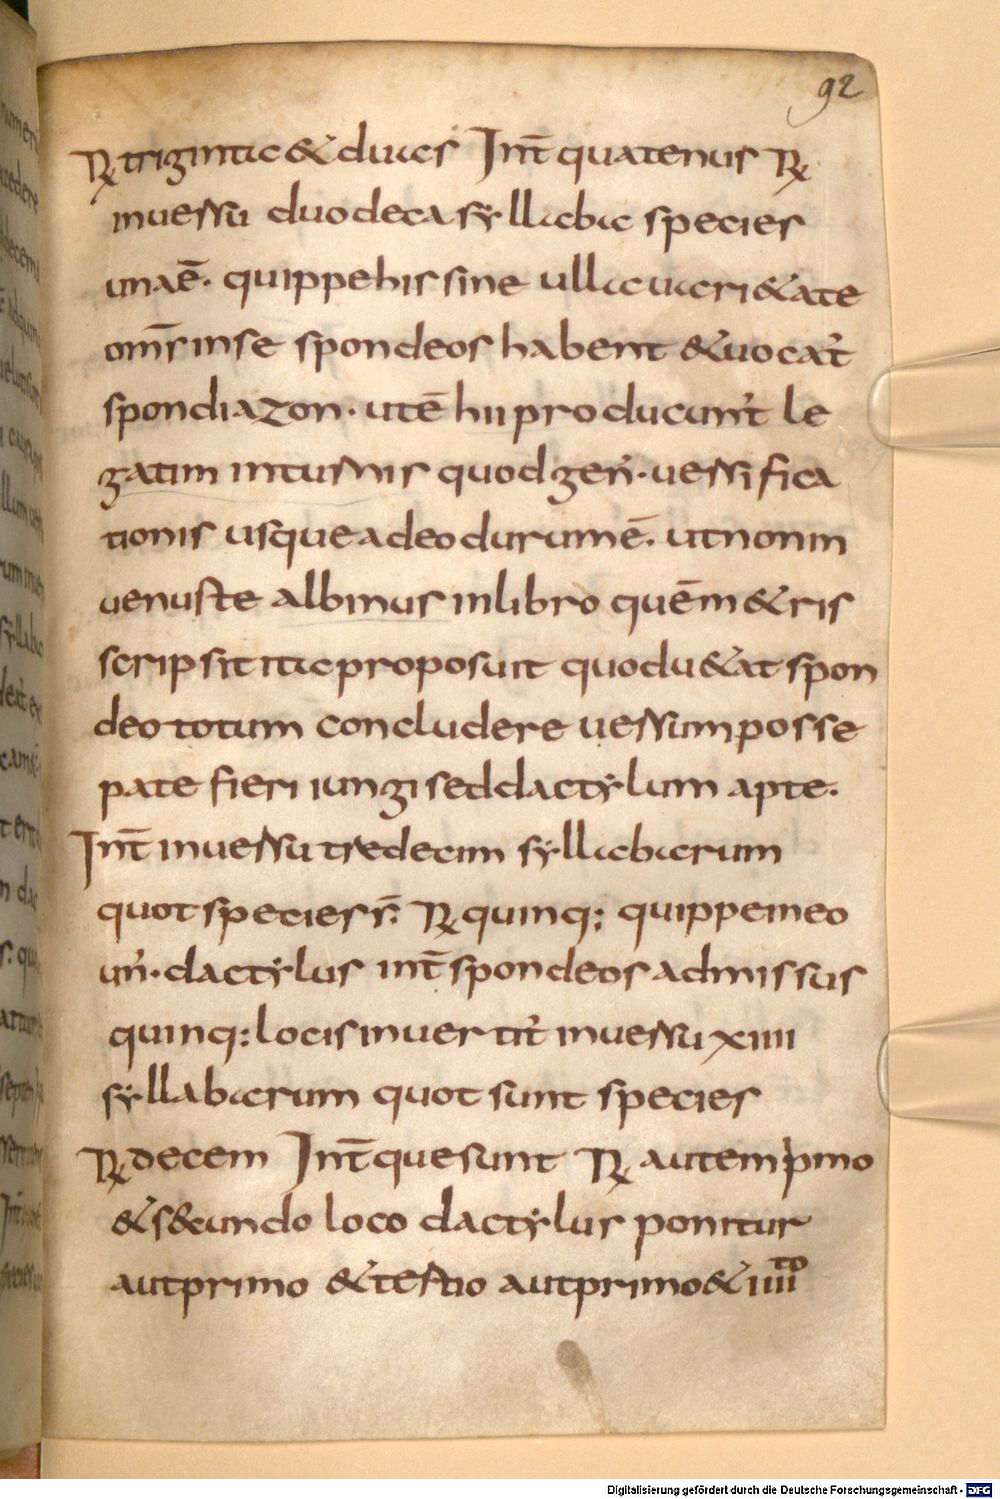 92
R̨ triginta & duaes Int̄ quatenus R̨
inuersu duodecasyllaba species
unaē. quippe his sine ulla uari&ate
om̄s inse spondeos habent & uocat̉
spondiazon. utē hii producunt̉ le
gatim intusnis quod gen̉. uersifica
tionis usque adeo durum ē. ut non in
uenuste albinus in libro quē m&ris
scripsit ita proposuit quod u&at spon
deo totum concludere uersum posse
pate fieri iungi sed dactylum apte.
Int̄ inuersu tredecim syllabarum
quot species s̄. R̨ quinq; quippe in eo
un̉. dactylus int̄ spondeos admissus
quinq; locis inuertit̉ inuersu xiiii
syllabarum quot sunt species
R̨ decem Int̄ que sunt R̨ autem pmo
& s&undo loco dactylus ponitur
aut primo & tertio aut primo & iiiito
Digitalisierung gefördert durch die Deutsche Forschungsgemeinschaft - DFG